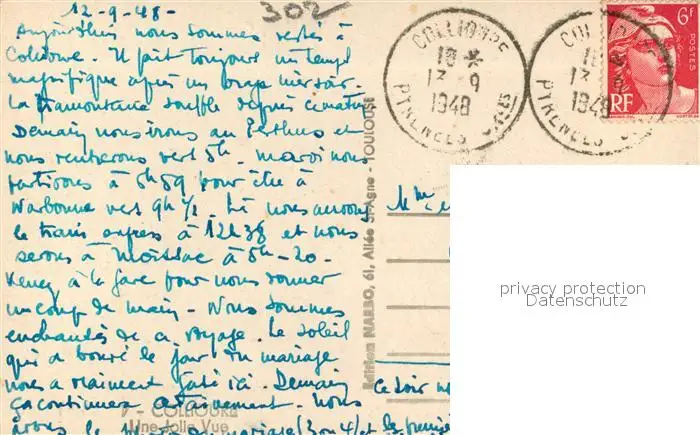 12-9-48-
302
Aujourd'hui nous sommes restés à
Collioure. Il fait toujours un temps
magnifique après un orage hier soir.
La tramontane souffle depuis ce matin
Demain nous irons au Perthus et
nous rentrerons vers 5h. mardi nous
partirons à 8h59 pour être à
Narbonne vers 9h 1/2. Là nous aurons
le train express à 12h38 et nous
serons à Moissac à 5h-20-
Venez à la gare pour nous donner
un coup de main - Nous sommes
enchantés de ce voyage. Le soleil
qui a boudé le jour du mariage
nous a vraiment gâté ici. Demain
ça continuera certainement. Nous
avons le
mariage (3 ou 4) et les
V - COLLIOURE
Une Jolie Vue
Edition NARBO, 61, Allée St-Agne - TOULOUSE
COLLIOURE
18 *
13 - 9
1948
PYRENEES ORles
COLLIOURE
18
13
1948
PYRENEES
6f
POSTES
RF
Mme
ce soir
privacy protection
Datenschutz